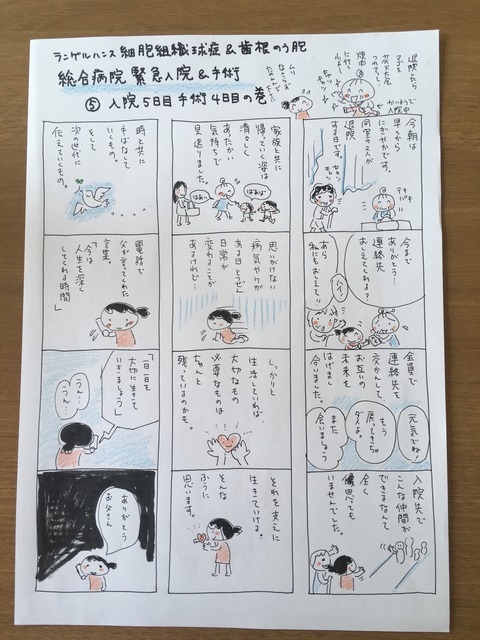 ランゲルハンス細胞組織球症&歯根のう胞
総合病院 緊急入院&手術
⑤ 入院5日目 手術4日目の巻
退院したら
今朝は
早くから
にぎやかです。
同室の2人が
退院
する日です。
今まで
ありがとう…
連絡先
おしえてくれる?
ハイ!
あら
私にもおしえて!!
全員で
連絡先を
交かんして、
お互いの
未来を
はげまし
合いました。
元気でね!
もう
戻ってきちゃ
ダメよ。
また
会いましょう
入院先で
こんな仲間が
できるなんて
全く
思っても
いませんでした。
家族と共に
帰っていく姿は
清々しく
あたたかい
気持ちで
見送りました。
思いがけない
病気やケガ
あるひとつぜん
日常が
変わることが
あるけれど…
しっかりと
生活していれば
大切なもの
必要なものは
ちゃんと
残っているのかも。
それを支えに
生きていける。
そんな
ふうに
思います。
時と共に
手ばなして
いくもの。
そして
次の世代に
伝えていくもの。
電話で
父が言ってくれた
言葉。
「今は
人生を深く
してくれる時間」
「一日一日を
大切に生きて
いきましょう」
うん…
うん…
ありがとう
お父さん